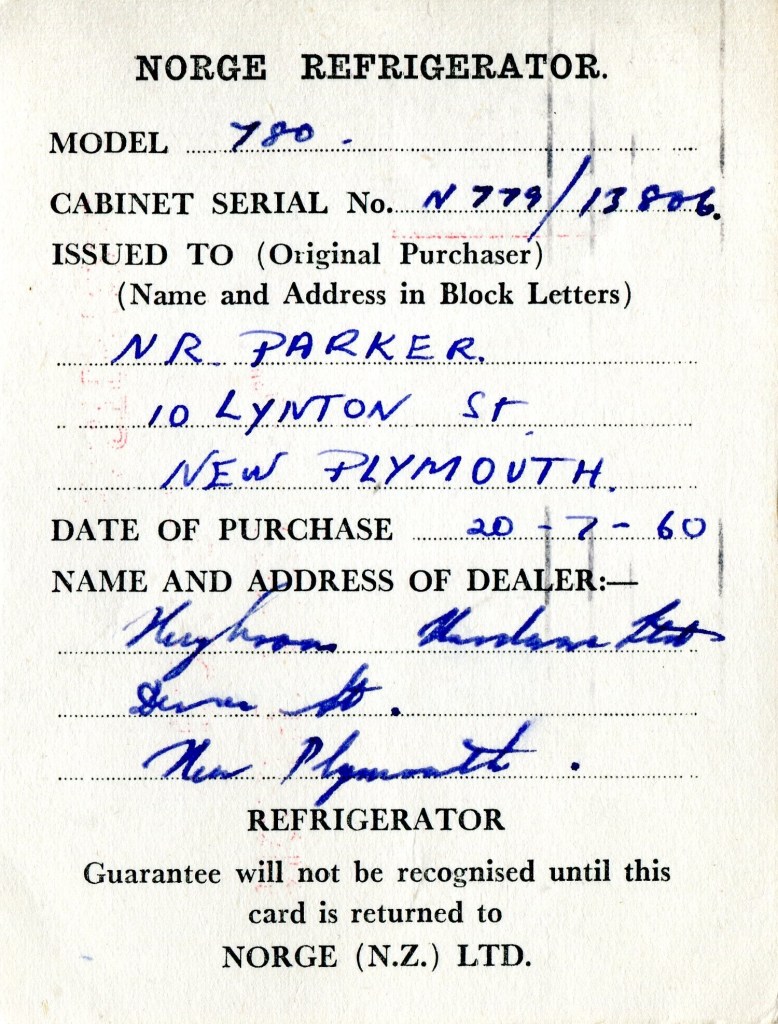 NORGE REFRIGERATOR.
MODEL 780.
CABINET SERIAL No. N 779/13806.
ISSUED TO (Original Purchaser)
(Name and Address in Block Letters)
N R. PARKER.
10 LYNTON St.
NEW PLYMOUTH.
DATE OF PURCHASE 20-7-60
NAME AND ADDRESS OF DEALER:—
St.
New Plymouth.
REFRIGERATOR
Guarantee will not be recognised until this
card is returned to
NORGE (N.Z.) LTD.